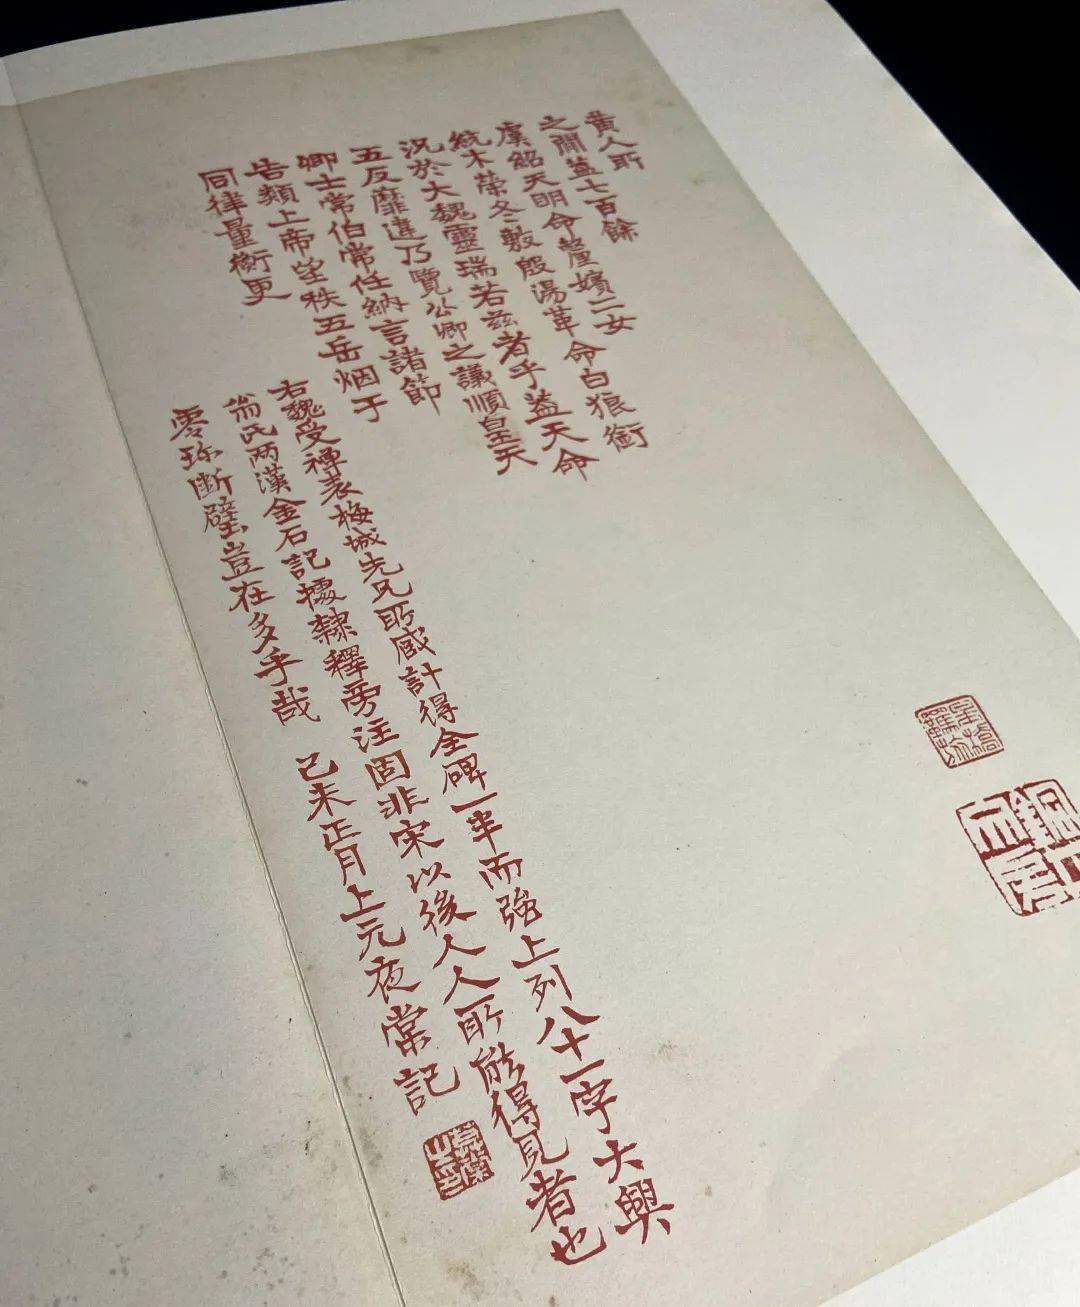 黄人所
之閒葢七百餘
虞紹天明命釐嬪二女
統木榮冬敷殷湯革命白狼銜
況於大魏靈瑞若兹者乎葢天命
五反靡違乃覽公卿之議順皇天
卿士常伯常任納言諸節
告類上帝望秩五岳烟于
同律量衡更
右魏受禪表梅城先兄所臧計得全碑一半而強上列八十一字大興
翁氏两漢金石記據隸釋旁注固非宋以後人人所能得見者也
零珎斷璧豈在多乎哉 己未正月上元夜常記